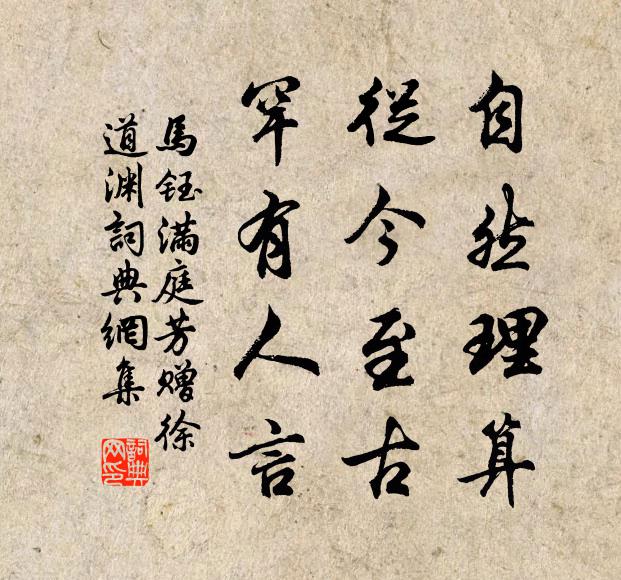 自然理算
從今至古
罕有人言
馬鈺滿庭芳贈徐
道渊詞典網集
詞典网印